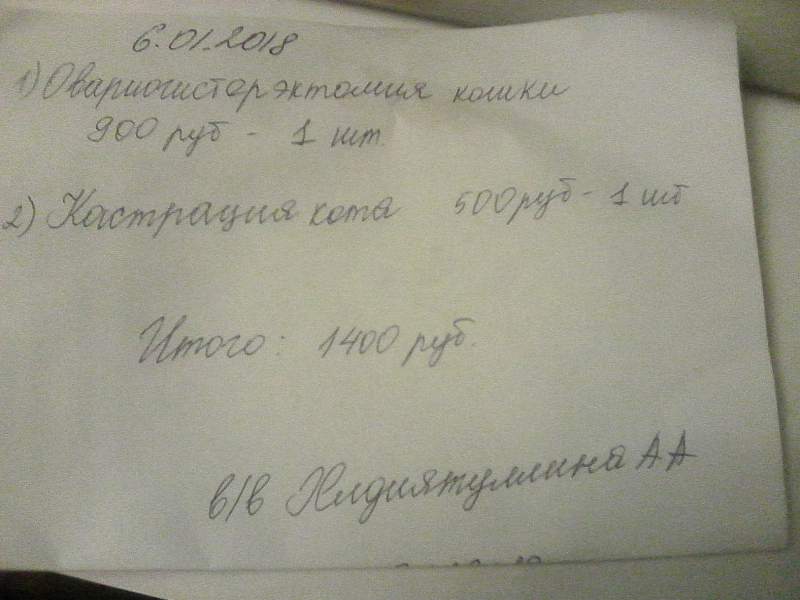 6.01.2018
1) Овариогистерэктомия кошки
900 руб - 1 шт.
2) Кастрация кота 500 руб - 1 шт
Итого: 1400 руб.
в/в АА